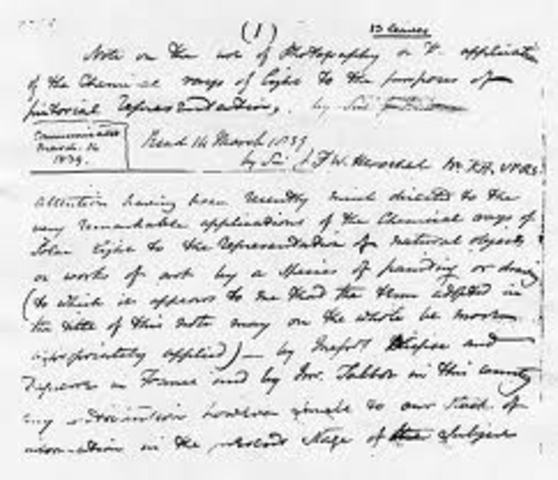 (1)
Note on the art of Photography or the application
of the Chemical rays of light to the purposes of
pictorial representation,
Communicated
March. 14
1839.
Read 14 March 1839
by Sir J. F. W. Herschel V.P.R.S.
Attention having been recently much directed to the
very remarkable applications of the Chemical rays of
Solar light to the representation of natural objects
or works of art by a species of painting or
(to which it appears to me that the term adopted in
the title of this note may on the whole be most
appropriately applied) — by and
in France and by Mr. Talbot in this country
my however to our
in the present stage of the subject